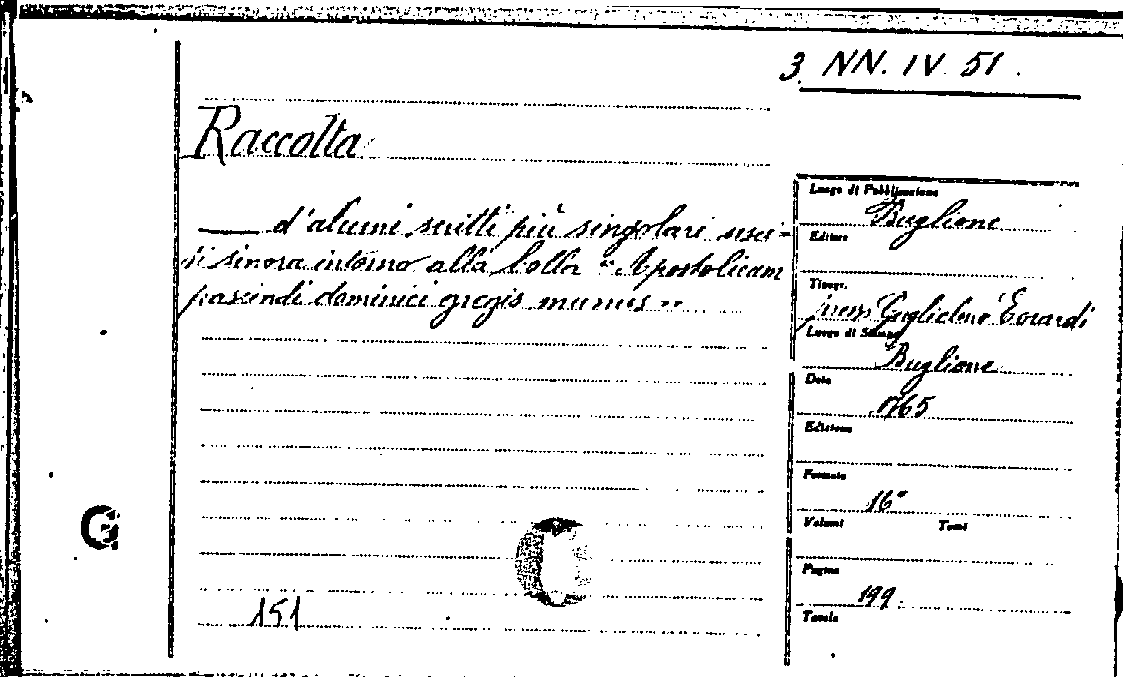 3 NN. IV 51.
Raccolta
d'alcuni scritti più singolari usci-
ti sinora intorno alla bolla "Apostolicam
pascindi dominici gregis munus"
151
G
Luogo di Pubblicazione
Buglione
Editore
Tipogr.
press Guglielmo Evardi
Luogo di Stampa
Buglione
Data
1765
Edizione
Formato
16°
Volumi Tomi
Pagine
199.
Tavole